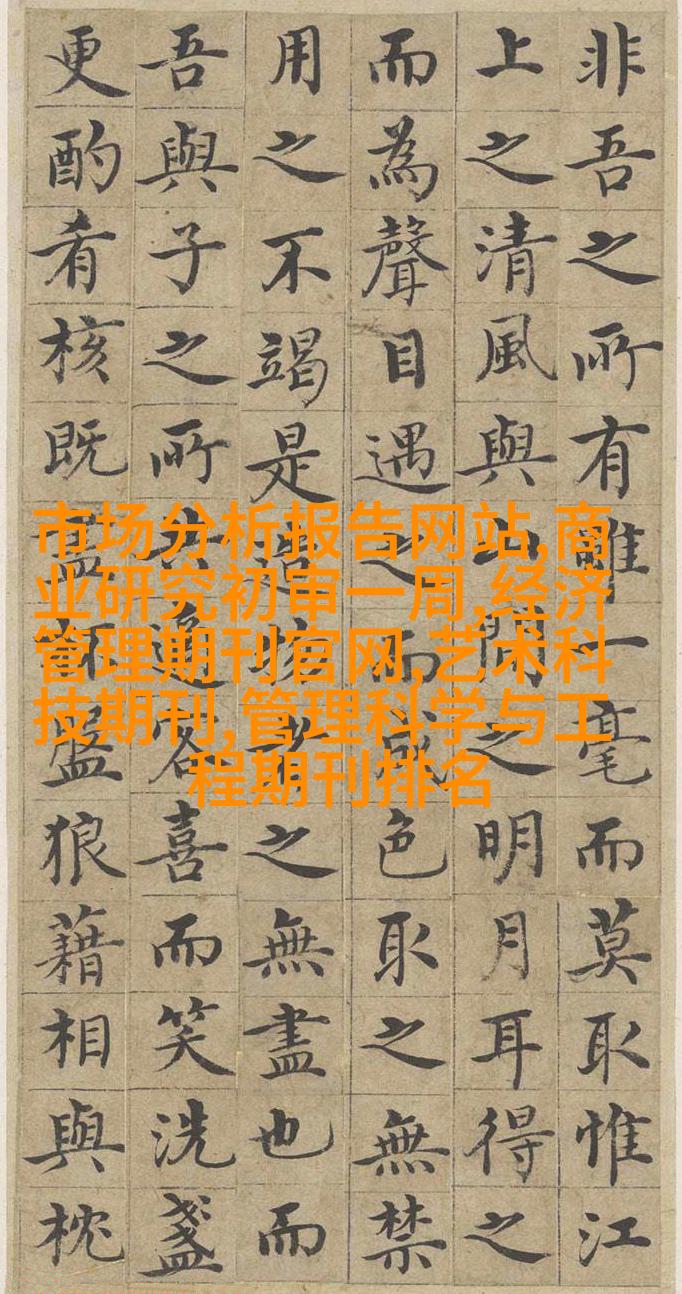 非吾之所有雖一毫而莫取惟江
上之清風與山間之明月耳得之
而為聲目遇之而成色取之無禁
用之不竭是造物者之無盡也而
吾與子之所共適客喜而笑洗盞
更酌肴核既盡杯盤狼藉相與枕
市场分析报告网站,商
业研究初审一周,经济
管理期刊官网,艺术科
技期刊,管理科学与工
程期刊排名